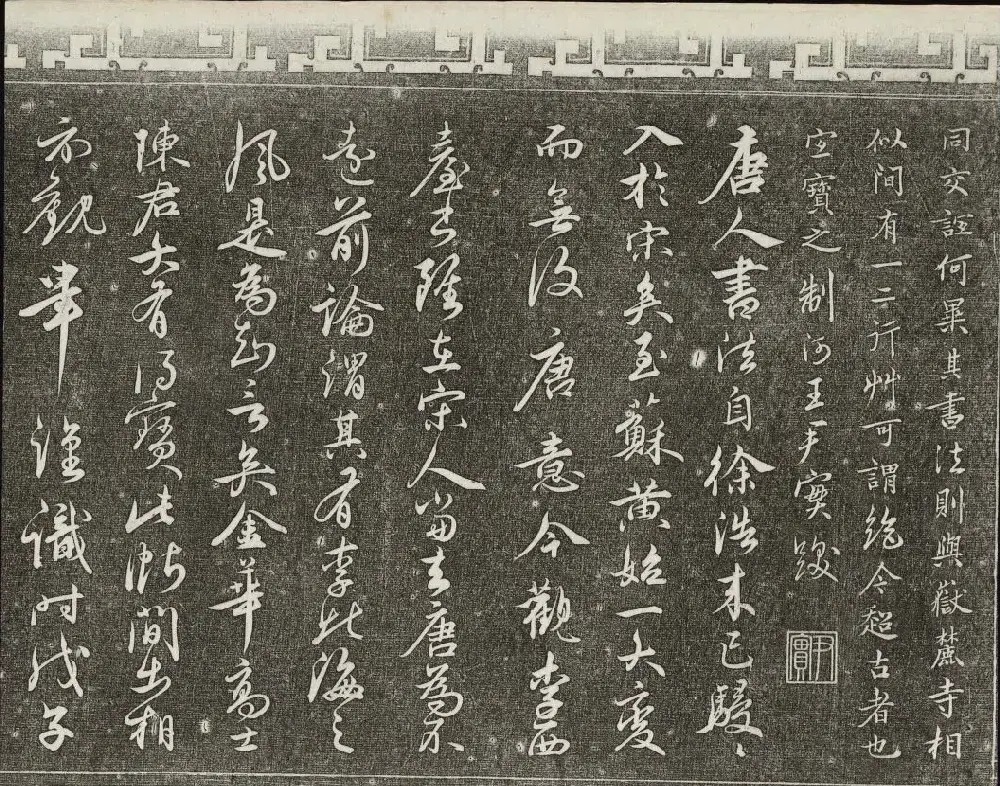 同交誼何異其書法則與嶽麓寺相
似間有一二行艸可謂絶今超古者也
宜寶之制河王尹實跋
尹實
唐人書法自徐浩来已駸〻
入於宋矣至蘇黄始一大變
而無復唐意今觀李西
臺書雖在宋人當去唐為不
遠前論謂其有李北海之
風是為知言矣金華高士
陳君大有得寶此帖間出相
示觀畢謹識时戊子